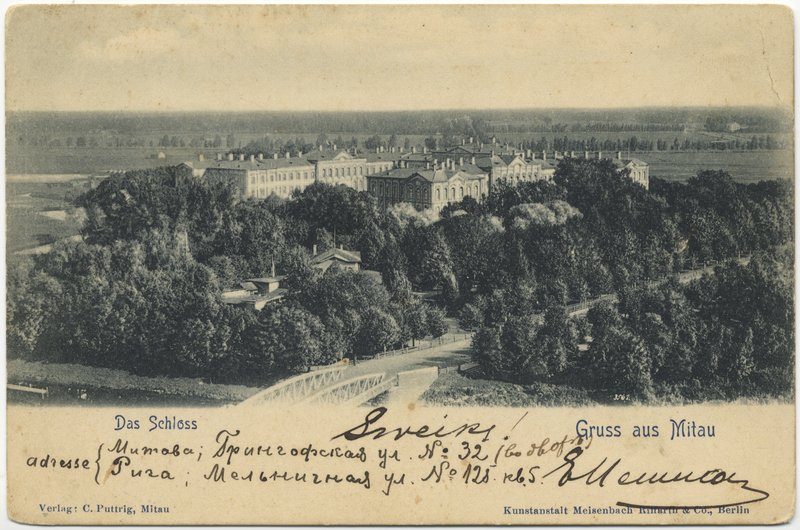 Das Schloss
Gruss aus Mitau
Sweiks!
adresse { Митава; Грингофская ул. № 32 (во дворѣ)
Рига; Мельничная ул. № 125 кв. 5.
Verlag: C. Puttrig, Mitau
Kunstanstalt Meisenbach Riffarth & Co., Berlin